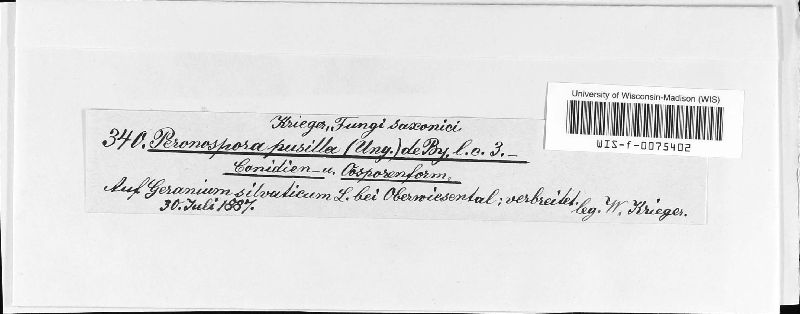 University of Wisconsin-Madison (WIS)
WIS-f-0075402
Krieger, Fungi saxonici
340. Peronospora pusilla (Ung.) de By. l. c. 3. –
Conidien- u. Oosporenform.
Auf Geranium silvaticum L. bei Oberwiesental; verbreitet.
30. Juli 1887.
leg. W. Krieger.